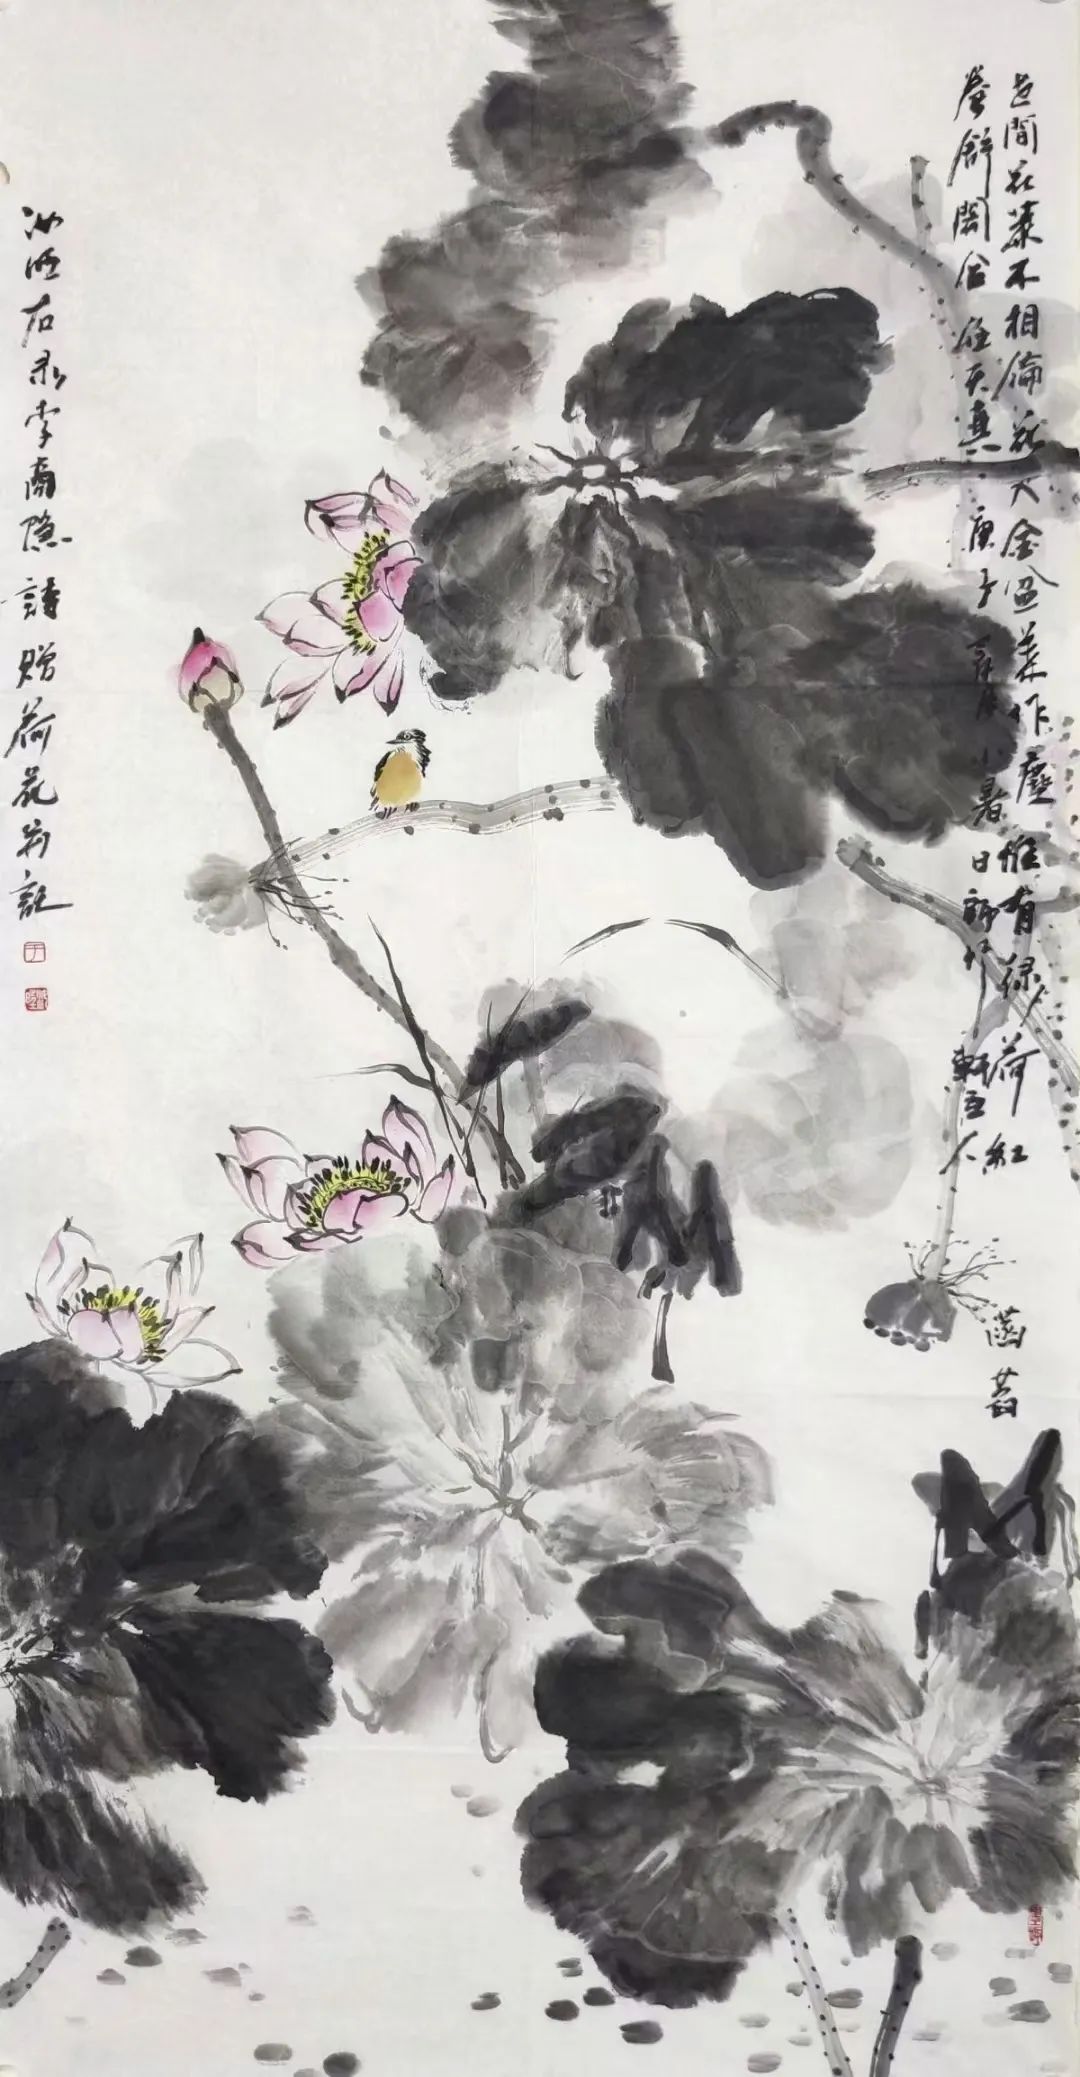 世間花葉不相倫花入金盆葉作塵惟有绿荷紅菡萏
卷舒開合任天真庚子小暑日師竹軒主人
右录李商隐詩赠荷花并記